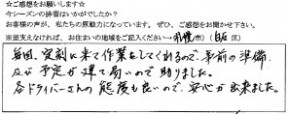 ☆ご感想をお願いします☆
今シーズンの排雪はいかがでしたか？
お客様の声が、私たちの原動力になっています。ぜひ、ご感想をお聞かせ下さい。
※差支えなければ、お住まいの地域をご記入ください→札幌(市) (白石区)
毎回、定刻に来て作業をしてくれるので、事前の準備
及び予定が建て易いので助りました。
各ドライバーさんの態度も良いので、安心が出来ました。